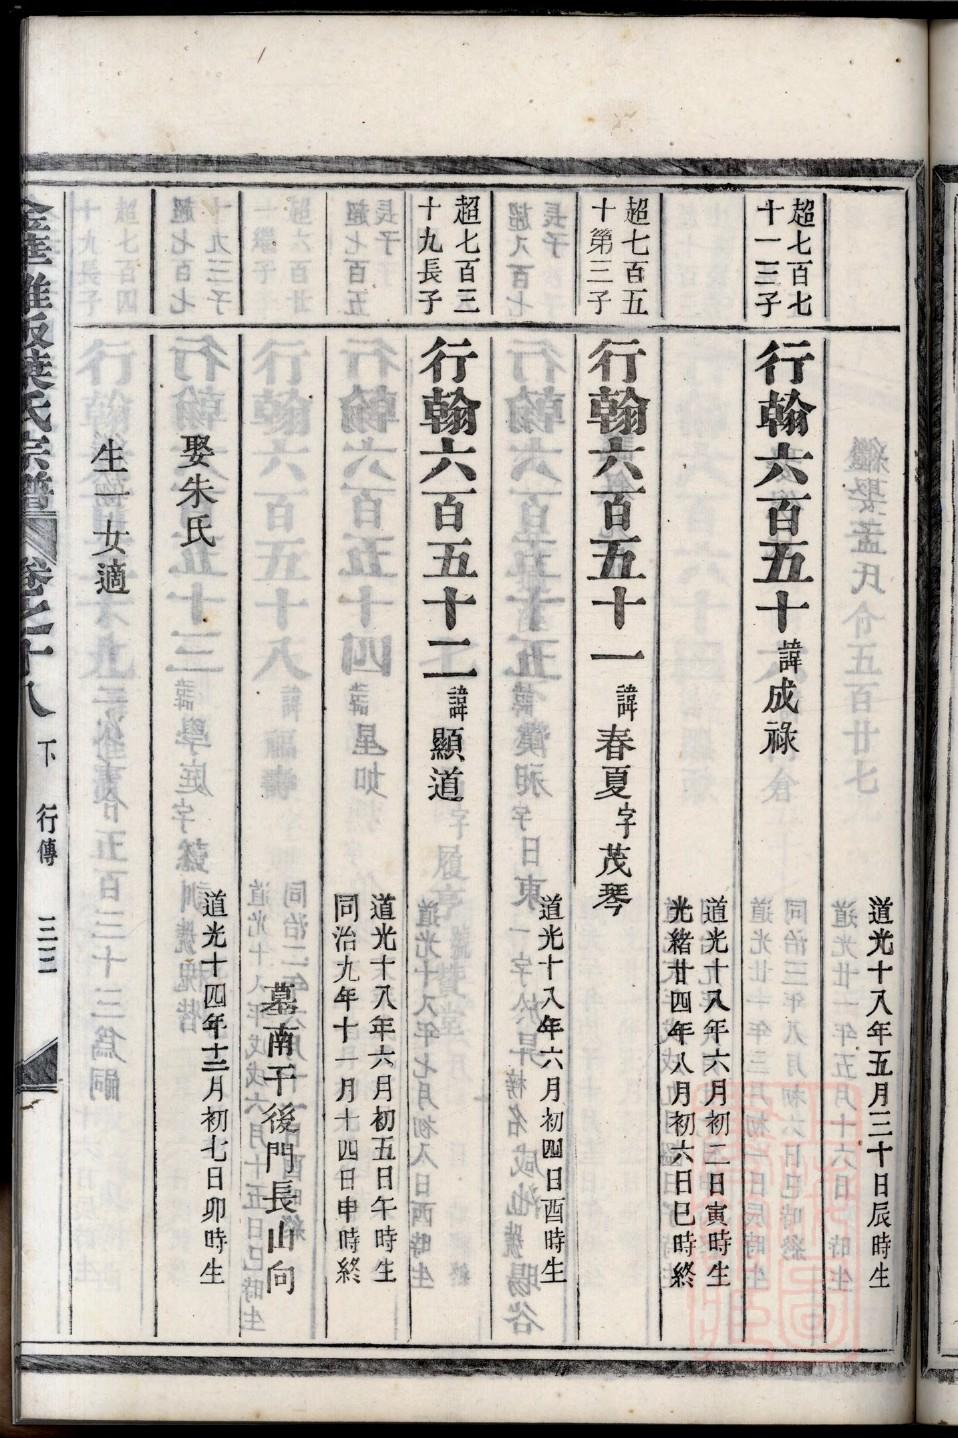 道光十八年五月三十日辰時生
超七百七
十一三子
行翰六百五十諱成祿
道光十八年六月初二日寅時生
光緒廿四年八月初六日巳時終
超七百五
十第三子
行翰六百五十一諱春夏字茂琴
道光十八年六月初四日酉時生
超七百三
十九長子
行翰六百五十二諱顯道
道光十八年六月初五日午時生
同治九年十一月十四日申時終
墓南干後門長山向
娶朱氏
道光十四年十二月初七日卯時生
生一女適
葉氏宗譜 卷之十八 下 行傳 三三